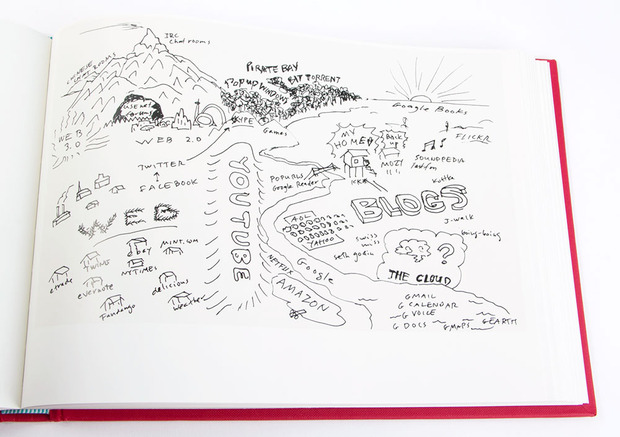 IRC
Chat rooms
CHINESE
CHAT ROOMS
PIRATE BAY
POPUP WINDOWS
BAT TORRENT
USENET
SKYPE
Games
WEB
3.0
WEB 2.0
Google Books
MY
HOME
BACK
UP
MOZY
FLICKR
SOUNDPEDIA
last.fm
TWITTER
FACEBOOK
YOUTUBE
POPURLS
Google Reader
KK
Kottke
BLOGS
J-Walk
boing-boing
AOL
YAHOO
swiss
miss
seth godin
?
THE CLOUD
ebay
MINT.COM
NYTIMES
TWINE
etrade
evernote
delicious
Fandango
Weather
NETFLIX
Google
AMAZON
GMAIL
G CALENDAR
G VOICE
G DOCS
GMAPS
GEARTH